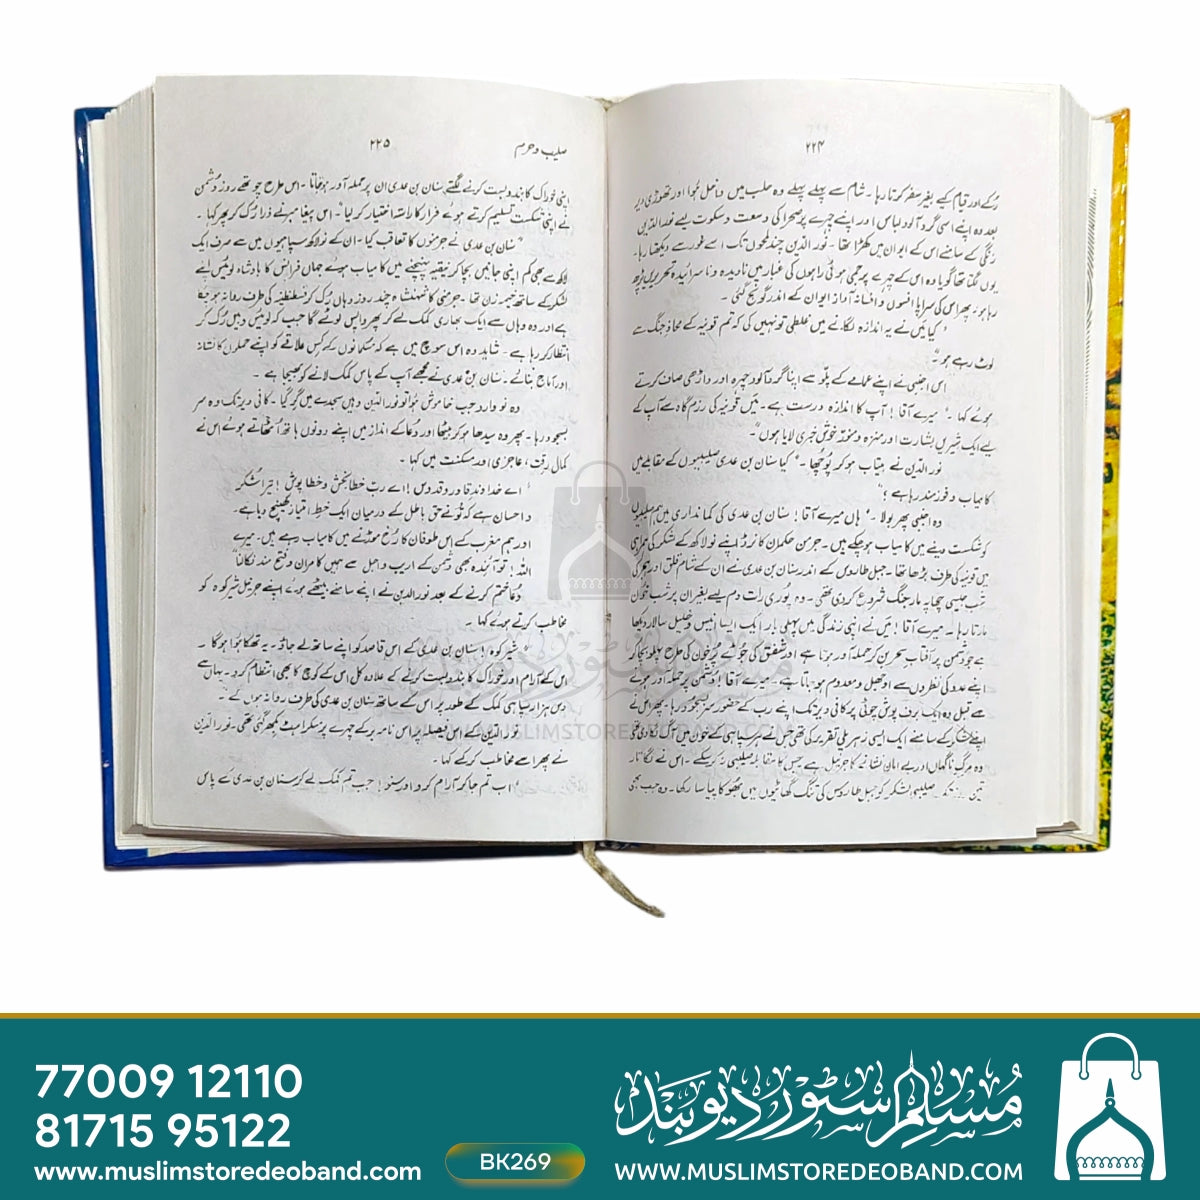 ۲۲۴
رُکے اور قیام کیے بغیر سفر کرتا رہا۔ شام سے پہلے پہلے وہ حلب میں داخل ہُوا اور تھوڑی دیر
بعد وہ اپنے اسی گرد آلود لباس اور اپنے چہرے پر صحرا کی وسعت و سکوت لیے نور الدّین
زنگی کے سامنے اس کے ایوان میں کھڑا تھا۔ نور الدّین چند لمحوں تک اسے غور سے دیکھتا رہا۔
یوں لگتا تھا گویا وہ اس کے چہرے پر جمی ہوئی راہوں کی غبار میں نادیدہ و ناسرائیدہ تحریریں پڑھ
رہا ہو۔ پھر اس کی سراپا افسوں و افسانہ آواز ایوان کے اندر گونج گئی۔
"کیا میں نے یہ اندازہ لگانے میں غلطی تو نہیں کی کہ تم قونیہ کے محاذِ جنگ سے
لوٹ رہے ہو۔"
اس اجنبی نے اپنے عمامے کے پلّو سے اپنا گرد آلود چہرہ اور داڑھی صاف کرتے
ہوئے کہا۔ "میرے آقا! آپ کا اندازہ درست ہے۔ میں قونیہ کی رزم گاہ سے آپ کے
لیے ایک شیریں بشارت اور منزہ و منوّر خوش خبری لایا ہوں"۔
نور الدّین نے بیتاب ہو کر پُوچھا۔ "کیا سنان بن عدی صلیبیوں کے مقابلے میں
کامیاب و فوزمند رہا ہے؟"
وہ اجنبی پھر بولا۔ "ہاں میرے آقا! سنان بن عدی کی کمانداری میں ہم صلیبیوں
کو شکست دینے میں کامیاب ہو چکے ہیں۔ جرمن حکمران کانرڈ اپنے نو لاکھ کے لشکر کی ہمراہی
میں قونیہ کی طرف بڑھا تھا۔ جبل طاروس کے اندر سنان بن عدی نے ان کے ساتھ
شب جیسی چھاپہ مار جنگ شروع کر دی تھی۔ وہ پُوری رات دم لیے بغیر ان پر شب خون
مارتا رہا۔ میرے آقا! میں نے اپنی زندگی میں پہلی بار ایک ایسا نہیں و جلیل سالار دیکھا
ہے جو دشمن پر آفتاب سحر بن کر حملہ آور ہوتا ہے اور شفق کی جُوئے پُر خون کی طرح پہلو بچا کر
اپنے عدو کی نظروں سے اوجھل و معدوم ہو جاتا ہے۔ میرے آقا! دشمن پر حملہ آور ہونے
سے قبل وہ ایک برف پوش چوٹی پر کافی دیر تک اپنے رب کے حضور سر بسجود رہا۔ پھر اس نے
اپنے لشکر کے سامنے ایک ایسی زہریلی تقریر کی تھی جس نے ہر سپاہی کے خون میں آگ لگا دی تھی
وہ مرگِ ناگہاں اور بے امان نشانے کا جرنیل ہے جس کا مقابلہ صلیبی نہ کر سکے۔ اس نے لگا تار
تین روز تک صلیبی لشکر کو جبل طاروس کی تنگ گھاٹیوں میں بھوکا پیاسا رکھا۔ وہ جب بھی
صلیب و حرم
۲۲۵
اپنی خوراک کا بندوبست کرنے نکلتے سنان بن عدی ان پر حملہ آور ہو جاتا۔ اس طرح چوتھے روز دُشمن
نے اپنی شکست تسلیم کرتے ہوئے فرار کا راستہ اختیار کر لیا"۔ اس پیغامبر نے ذرا رُک کر پھر کہا۔
"سنان بن عدی نے جرمنوں کا تعاقب کیا۔ ان کے نو لاکھ سپاہیوں میں سے صرف ایک
لاکھ سے بھی کم اپنی جانیں بچا کر نیقیہ پہنچنے میں کامیاب ہوئے جہاں فرانس کا بادشاہ لوئیس اپنے
لشکر کے ساتھ خیمہ زن تھا۔ جرمنی کا شہنشاہ چند روز وہاں رُک کر قسطنطنیہ کی طرف روانہ ہو چکا
ہے اور وہ وہاں سے ایک بھاری کمک لے کر پھر واپس لوٹے گا جب کہ لوئیس وہیں رُک کر
انتظار کر رہا ہے۔ شاید وہ اس سوچ میں ہے کہ مسلمانوں کے کِس علاقے کو اپنے حملوں کا نشانہ
اور آماج بنائے۔ سنان بن عدی نے مجھے آپ کے پاس کمک لانے کو بھیجا ہے۔
وہ نو وارد جب خاموش ہُوا تو نور الدّین وہیں سجدے میں گِر گیا۔ کافی دیر تک وہ سر
بسجود رہا۔ پھر وہ سیدھا ہو کر بیٹھا اور دُعا کے انداز میں اپنے دونوں ہاتھ اُٹھاتے ہوئے اس نے
کمال رقت، عاجزی اور مسکنت میں کہا۔
"اے خداوندِ قادر و قدوس! اے ربِّ خطا بخش و خطا پوش! تیرا شکر
و احسان ہے کہ تُو نے حق و باطل کے درمیان ایک خطِ امتیاز کھینچ دیا ہے۔
اور ہم مغرب کے اس طوفان کا رُخ موڑنے میں کامیاب رہے ہیں۔ میرے
اللہ! تُو آئندہ بھی دُشمن کے اریب و اہبل سے ہمیں کامران و فتح مند نکالنا"
دُعا ختم کرنے کے بعد نور الدین نے اپنے سامنے بیٹھے ہوئے اپنے جرنیل شیر کوہ کو
مخاطب کرتے ہوئے کہا۔
"شیر کوہ! سنان بن عدی کے اس قاصد کو اپنے ساتھ لے جاؤ۔ یہ تھکا ہُوا ہو گا۔
اس کے آرام اور خوراک کا بندوبست کرنے کے علاوہ کل اس کے کوچ کا بھی انتظام کر دو۔ یہاں سے
دس ہزار سپاہی کمک کے طور پر اس کے ساتھ سنان بن عدی کی طرف روانہ ہوں گے۔"
نور الدّین کے اس فیصلہ پر اس نامہ بر کے چہرے پر مسکراہٹ بکھر گئی تھی۔ نور الدین
نے پھر اسے مخاطب کر کے کہا۔
"اب تم جا کر آرام کرو اور سنو! جب تم کمک لے کر سنان بن عدی کے پاس
مسلم سٹور دیوبند
WWW.MUSLIMSTOREDEOBAND.COM
77009 12110
81715 95122
www.muslimstoredeoband.com
BK269
مسلم سٹور دیوبند
WWW.MUSLIMSTOREDEOBAND.COM